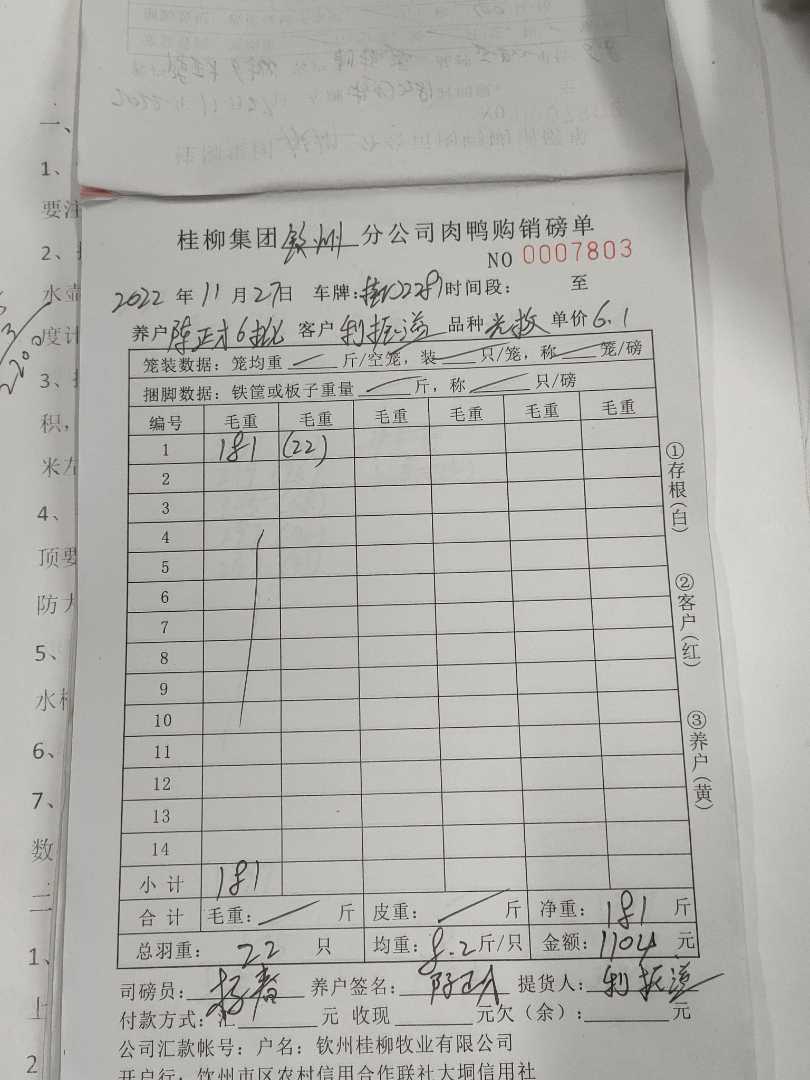 桂柳集团钦州分公司肉鸭购销磅单
NO 0007803
2022年11月27日 车牌: 时间段: 至
养户陈正才6批 客户利振溢 品种光枚 单价6.1
笼装数据:笼均重 斤/空笼,装 只/笼,称 笼/磅
捆脚数据:铁筐或板子重量 斤,称 只/磅
编号 毛重 毛重 毛重 毛重 毛重 毛重
1 181 (22)
2
3
4
5
6
7
8
9
10
11
12
13
14
小计 181
合计 毛重: 斤 皮重: 斤 净重:181斤
总羽重:22只 均重:8.2斤/只 金额:1104元
司磅员: 养户签名:陈正才 提货人:利振溢
付款方式:汇 元 收现 元欠(余): 元
公司汇款帐号:户名:钦州桂柳牧业有限公司
开户行:钦州市区农村信用合作联社大垌信用社
①存根(白)
②客户(红)
③养户(黄)
一、
1、
要注
2、
水壶
度计
3、
积,
米左
4、
顶要
防
5、
水
6、
7、
数
二
1、
上
2